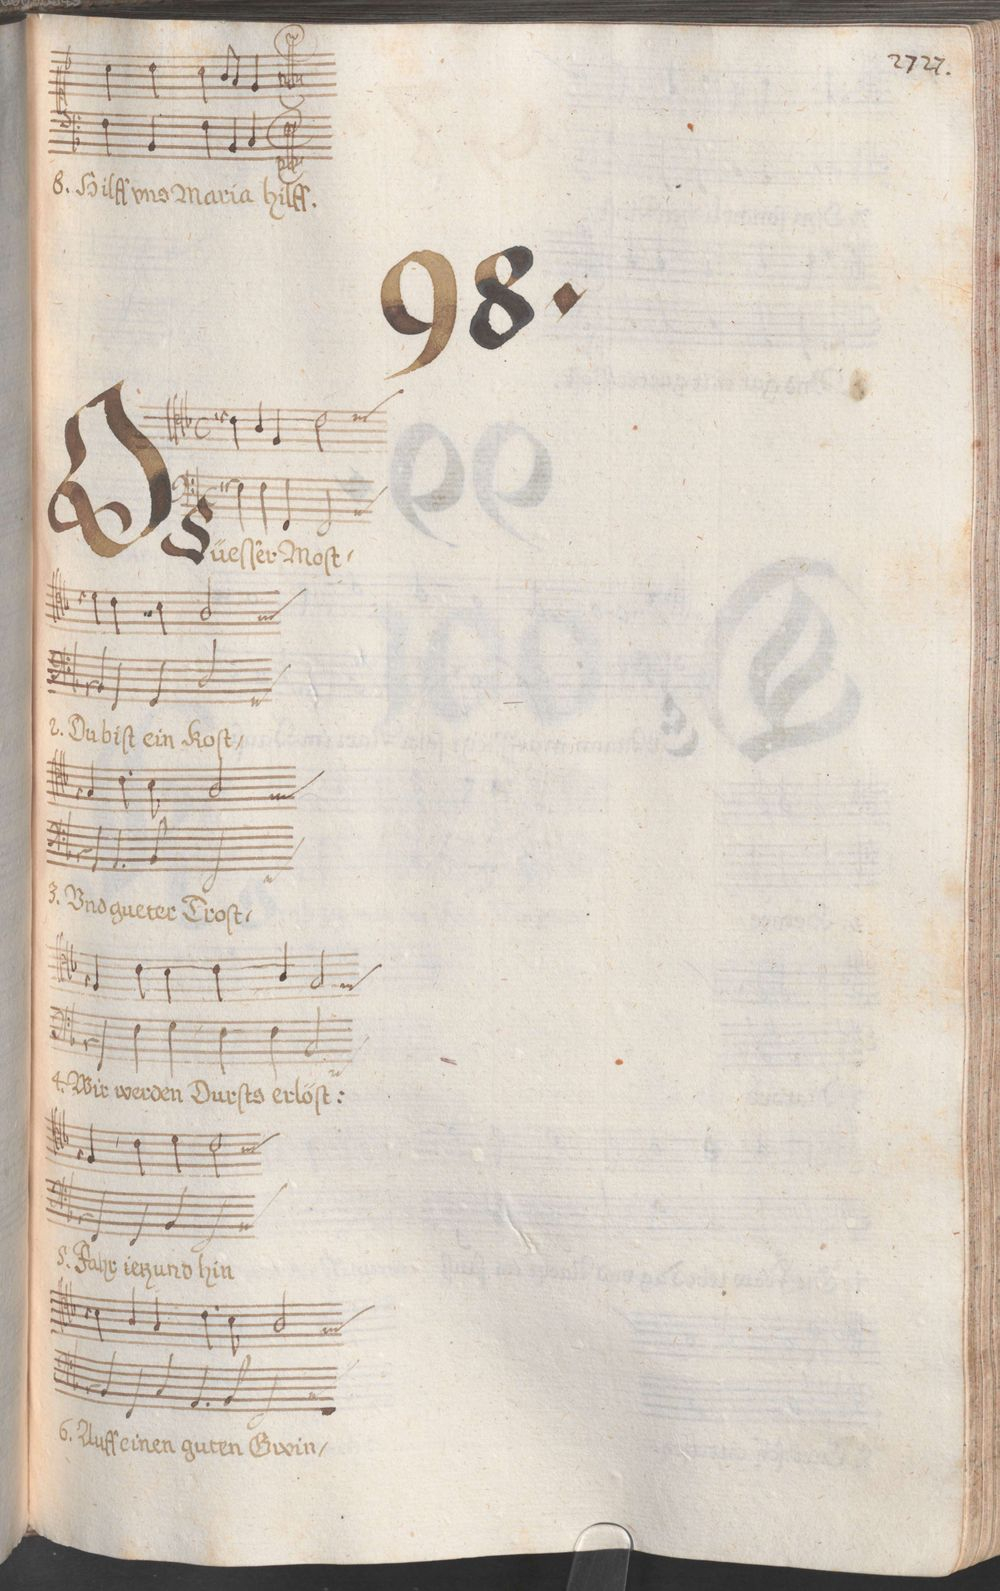 2727.
8. Hilff vns Maria hilff.
98.
O süesser Most/
2. Du bist ein Kost/
3. Vnd gueter Trost/
4. Wir werden Dursts erlöst:
5. Fahr iezund hin
6. Auff einen guten Gwin/